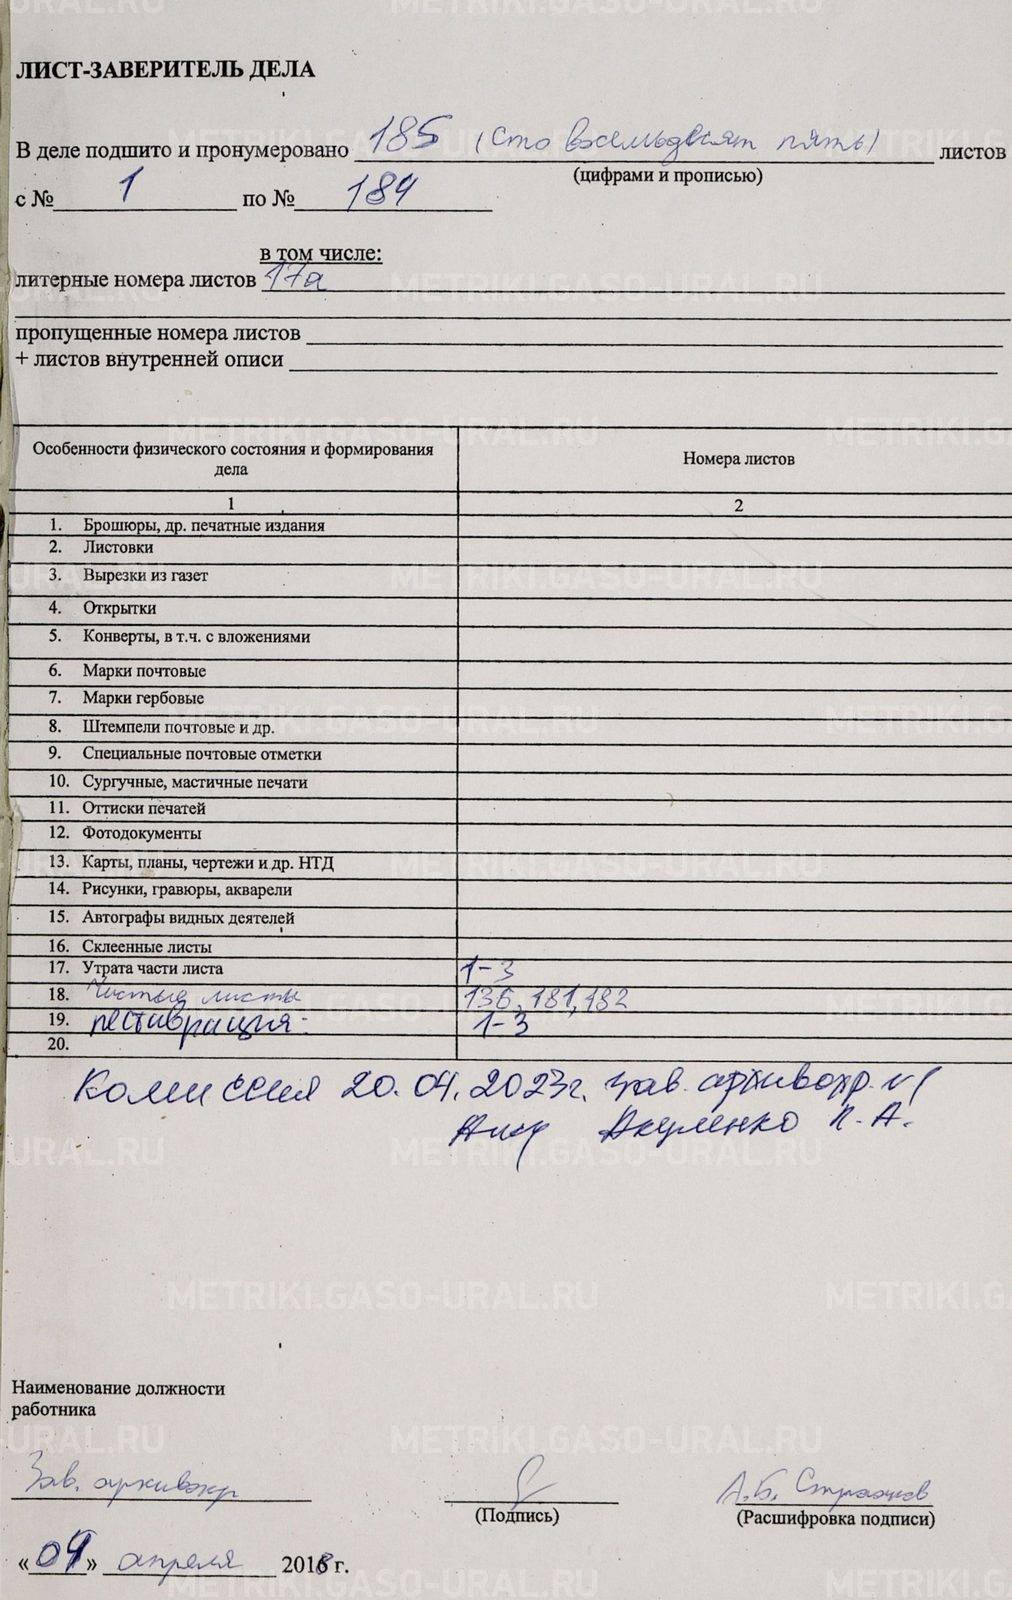 ЛИСТ-ЗАВЕРИТЕЛЬ ДЕЛА
В деле подшито и пронумеровано 185 (сто восемьдесят пять) листов
(цифрами и прописью)
с № 1 по № 184
в том числе:
литерные номера листов 17а
пропущенные номера листов
+ листов внутренней описи
Особенности физического состояния и формирования дела Номера листов
1 2
1. Брошюры, др. печатные издания
2. Листовки
3. Вырезки из газет
4. Открытки
5. Конверты, в т.ч. с вложениями
6. Марки почтовые
7. Марки гербовые
8. Штемпели почтовые и др.
9. Специальные почтовые отметки
10. Сургучные, мастичные печати
11. Оттиски печатей
12. Фотодокументы
13. Карты, планы, чертежи и др. НТД
14. Рисунки, гравюры, акварели
15. Автографы видных деятелей
16. Склеенные листы
17. Утрата части листа 1-3
18. Чистые листы 136, 181, 182
19. реставрация: 1-3
20.
Комиссия 20.04.2023г. зав. архивохр. №1
Акуленко А.
Наименование должности
работника
Зав. архивохр
(Подпись)
А.Б.
(Расшифровка подписи)
«04» апреля 2018 г.
METRIKI.GASO-URAL.RU